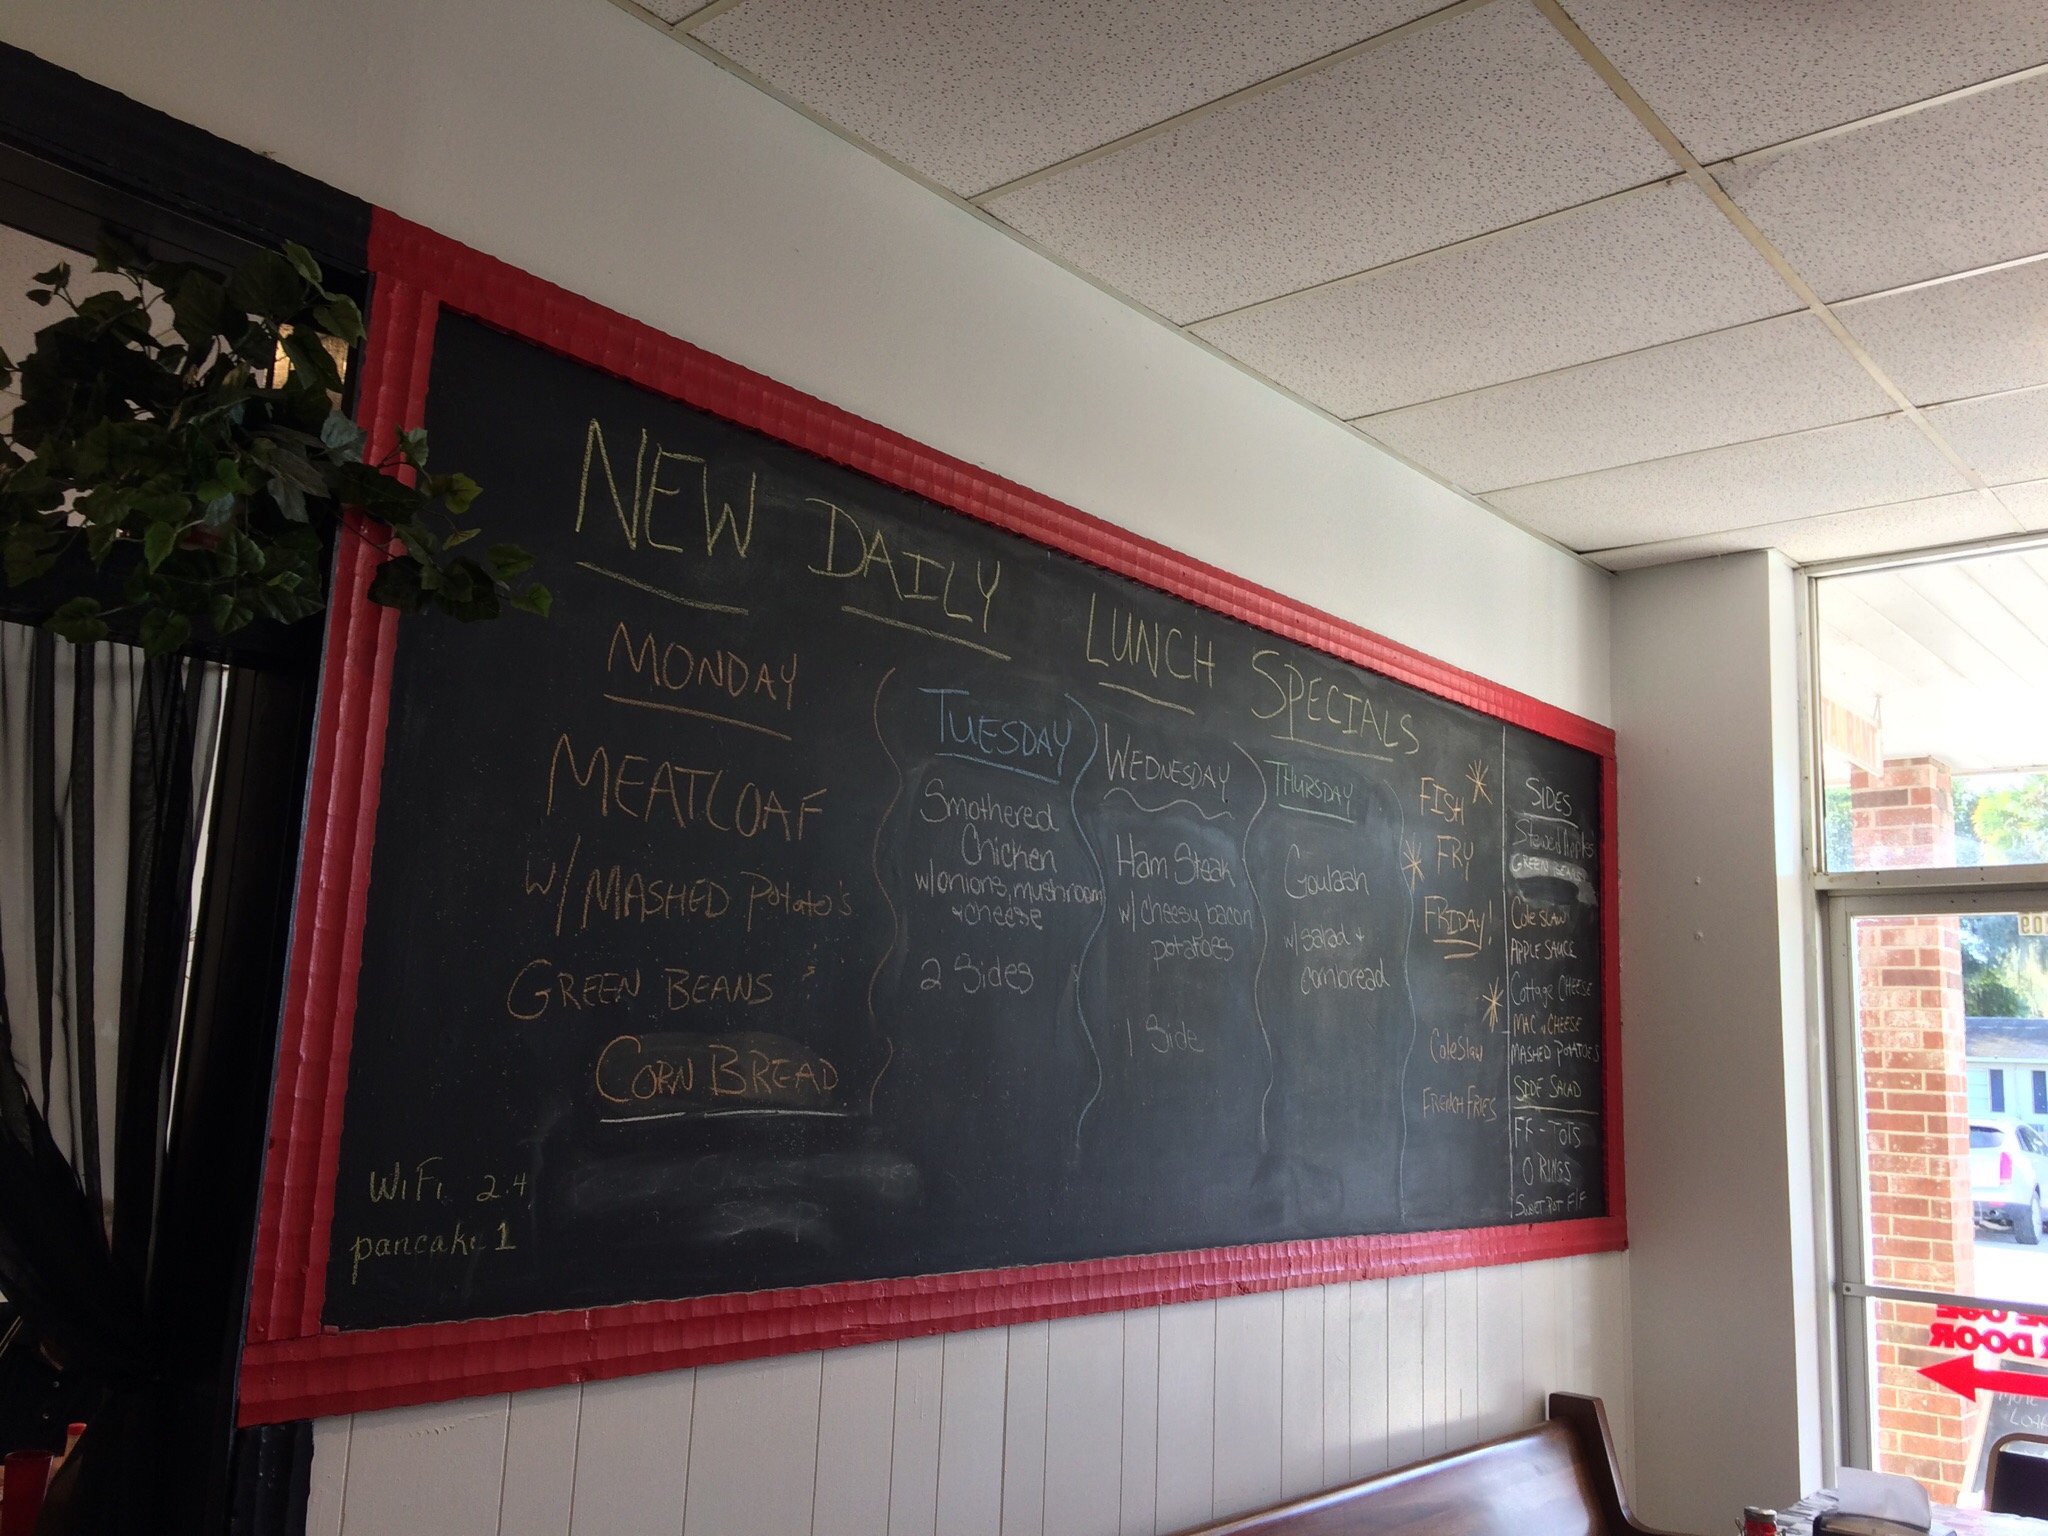 NEW DAILY LUNCH SPECIALS
MONDAY
MEATLOAF
W/ MASHED Potato's
GREEN BEANS
CORN BREAD
TUESDAY
Smothered
Chicken
w/onions, mushroom
+ cheese
2 Sides
WEDNESDAY
Ham Steak
w/ cheesy bacon
potatoes
1 Side
THURSDAY
Goulash
w/ salad +
cornbread
FISH
FRY
FRIDAY!
Coleslaw
FRENCH FRIES
SIDES
Stewed Apples
GREEN BEANS
Cole slaw
APPLE SAUCE
Cottage CHEESE
MAC & CHEESE
MASHED POTATOES
SIDE SALAD
FF - TOTS
O RINGS
SWEET POT F/F
WiFi 2.4
pancake 1
DOOR